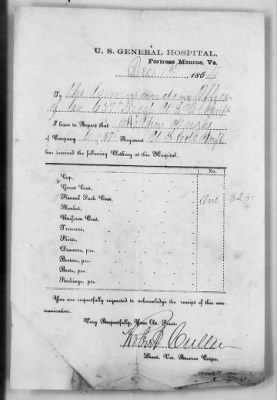 U. S. GENERAL HOSPITAL,
Fortress Monroe, Va.
Dec 186
To The Commanding Officer
of Co. C 37th Regt U.S.C. Troops
I have to Report that
of Company Regiment
has received the following Clothing at this Hospital.
No.
Cap,
Great Coat,
Flannel Sack Coat, One
Blanket,
Uniform Coat,
Trowsers,
Shirts,
Drawers, prs.
Bootees, prs.
Boots, prs.
Stockings, prs.
You are respectfully requested to acknowledge the receipt of this communication.
Very Respectfully, Your Obt. Servt.
Robert Cullen
Lieut. Vet. Reserve Corps.